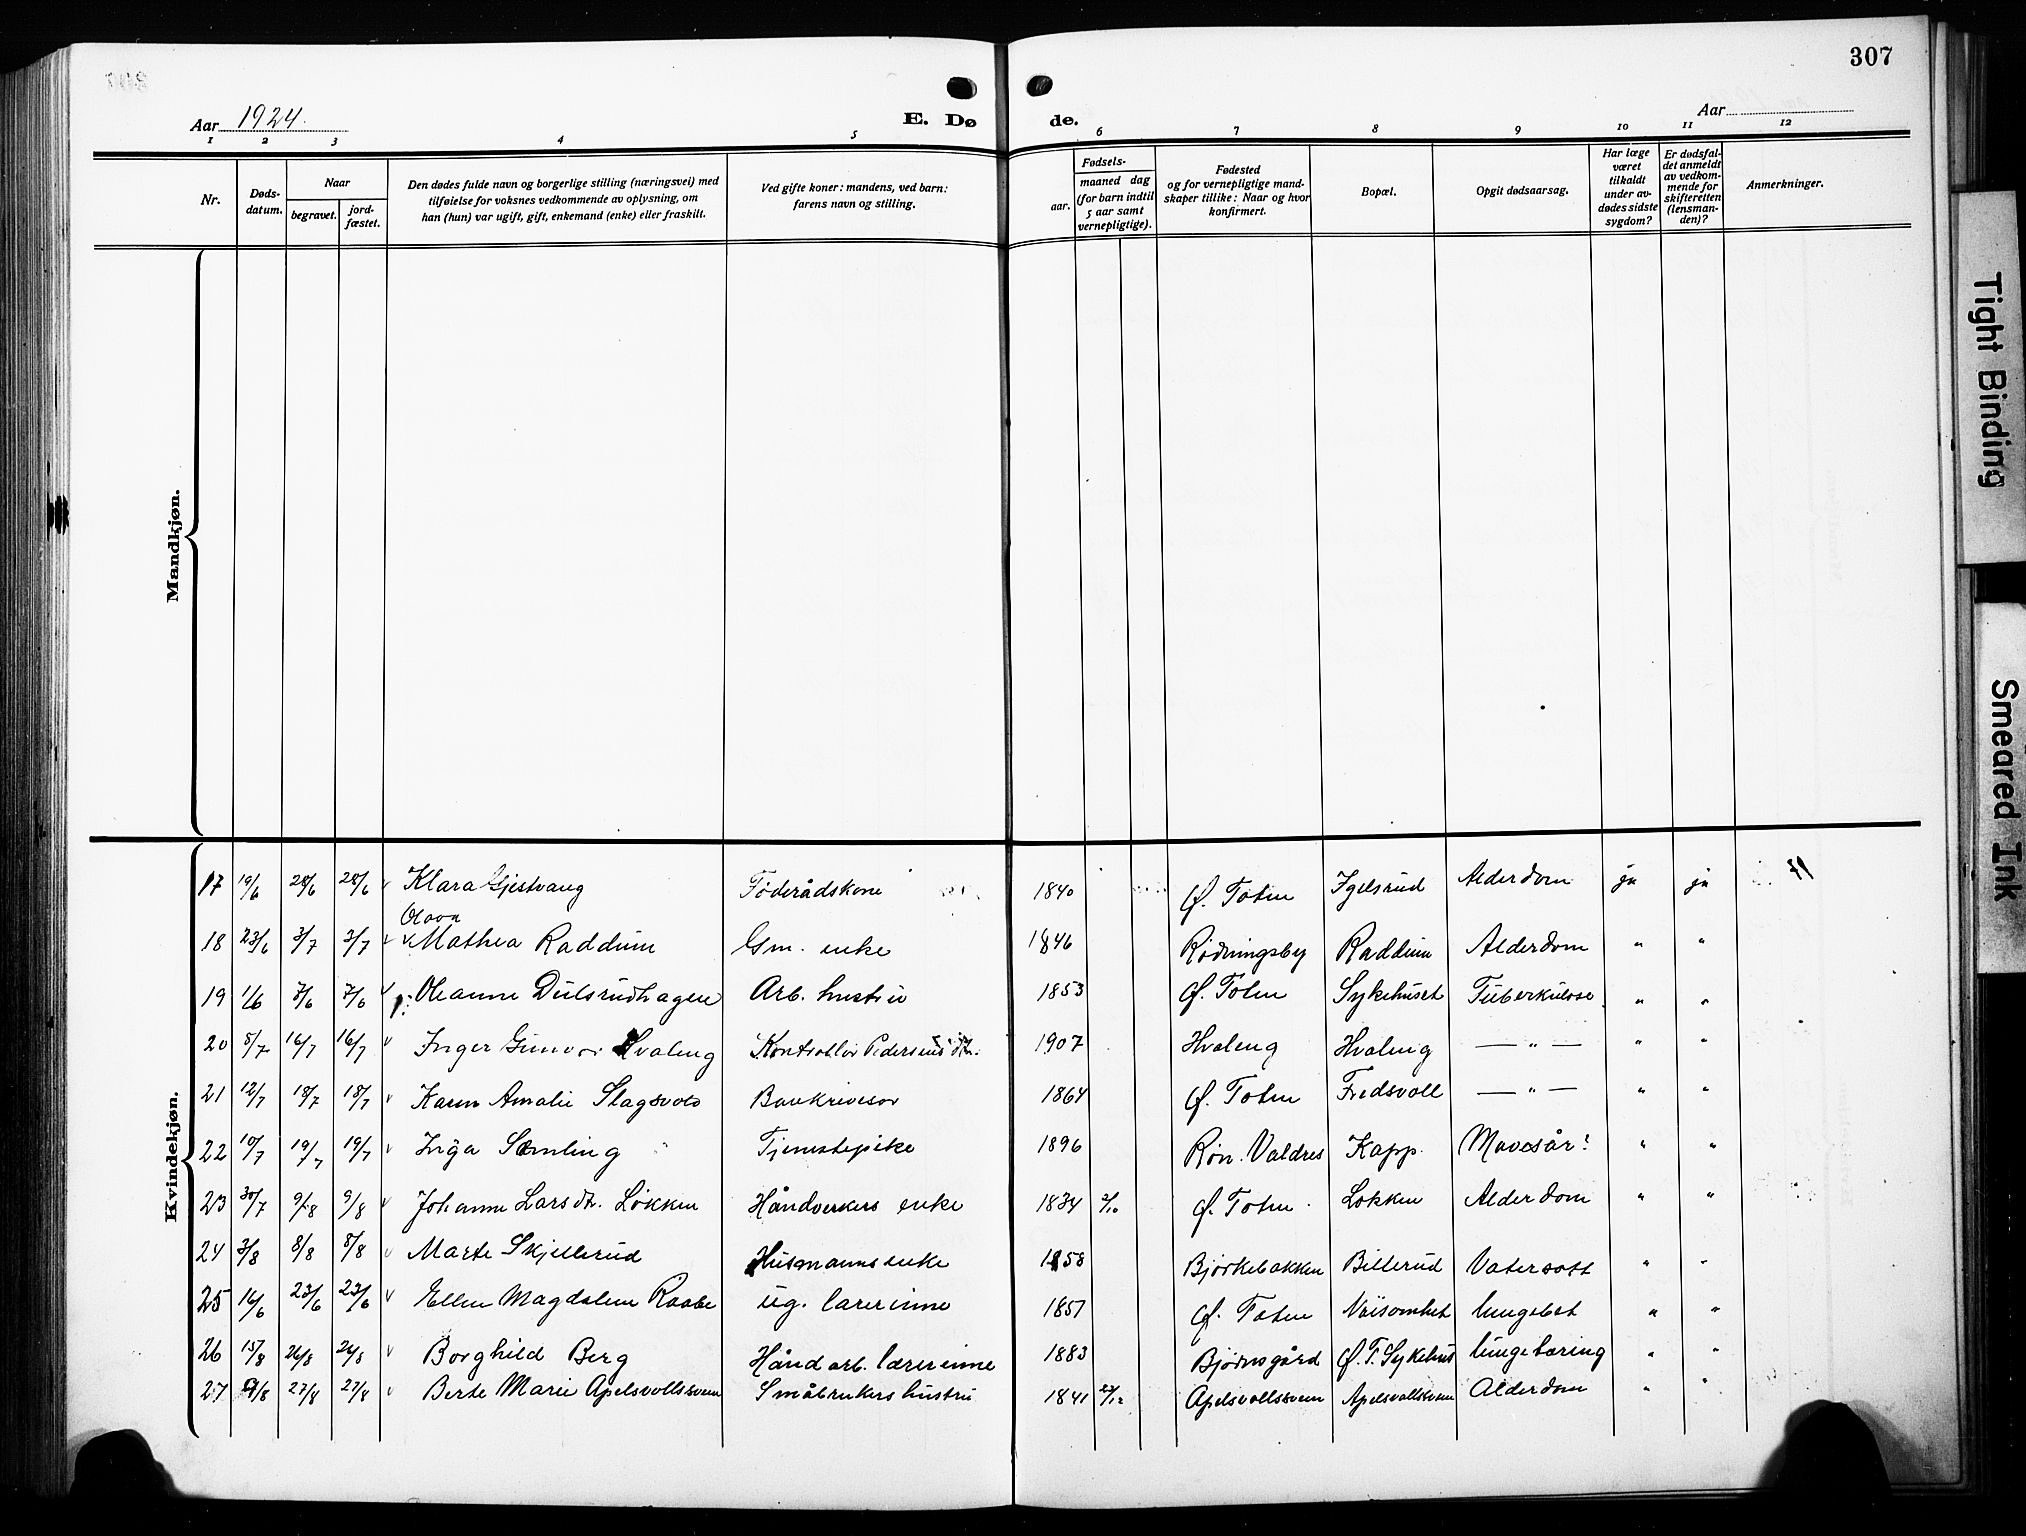 307
Aar 1924.
E. Døde.
Aar
1 2 3 4 5 6 7 8 9 10 11 12
Nr.
Døds-datum.
Naar
begravet.
jord-fæstet.
Den dødes fulde navn og borgerlige stilling (næringsvei) med
tilføielse for voksnes vedkommende av oplysning, om
han (hun) var ugift, gift, enkemand (enke) eller fraskilt.
Ved gifte koner: mandens, ved barn:
farens navn og stilling.
Fødsels-
aar.
maaned dag
(for barn indtil
5 aar samt
vernepligtige).
Fødested
og for vernepligtige mand-
skaper tillike: Naar og hvor
konfirmert.
Bopæl.
Opgit dødsaarsag.
Har læge
været
tilkaldt
under av-
dødes sidste
sygdom?
Er dødsfal-
det anmeldt
av vedkom-
mende for
skifteretten
(lensman-
den)?
Anmerkninger.
Mandkjøn.
Kvindekjøn.
17 19/6 28/6 28/6 Klara Gjestvang Føderådskone 1840 Ø. Toten Igelsrud Alderdom ja ja
Olava
18 23/6 3/7 3/7 Mathea Raddum Gm. enke 1846 Rødningsby Raddum Alderdom " "
19 1/6 7/6 7/6 Oleanne Dulsrudhagen Arb. hustru 1853 Ø. Toten Sykehuset Tuberkulose " "
20 8/7 16/7 16/7 Inger Gunvor Hvaleng Kontrollør Pedersens dtr. 1907 Hvaleng Hvaleng — " — " "
21 12/7 18/7 18/7 Karen Amalie Slagsvold Bankrevisor 1864 Ø. Toten Fredsvoll — " — " "
22 10/7 19/7 19/7 Inga Semling Tjenestepike 1896 Røn. Valdres Kapp. Mavesår? " "
23 30/7 9/8 9/8 Johanne Larsdtr. Løkken Håndverkers enke 1834 2/10 Ø. Toten Løkken Alderdom " "
24 3/8 8/8 8/8 Marte Skjellerud Husmanns enke 1858 Bjørkebakken Billerud Vatersott " "
25 16/6 23/6 23/6 Ellen Magdalene Raabe ug. lærerinne 1857 Ø. Toten Nøisomhet lungebet " "
26 15/8 26/8 26/8 Borghild Berg Håndarb. lærerinne 1883 Bjørnsgård Ø. T. Sykehus lungetæring " "
27 /8 27/8 27/8 Berte Marie Apelsvollsveen Småbrukers hustru 1841 27/12 Apelsvollsveen Apelsvollsveen Alderdom " "
Tight Binding
Smeared Ink